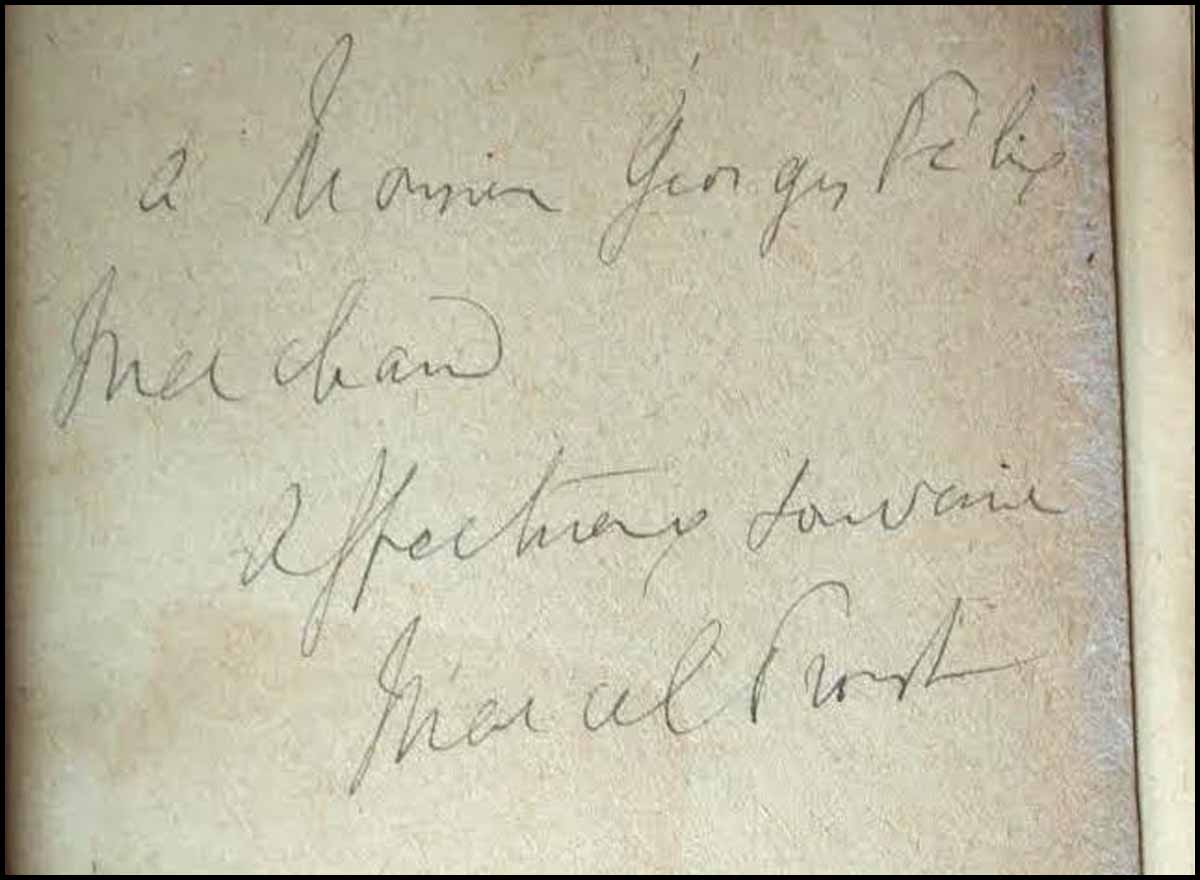 a Monsieur Georges Félix
Marchand
affectueux souvenir
Marcel Proust